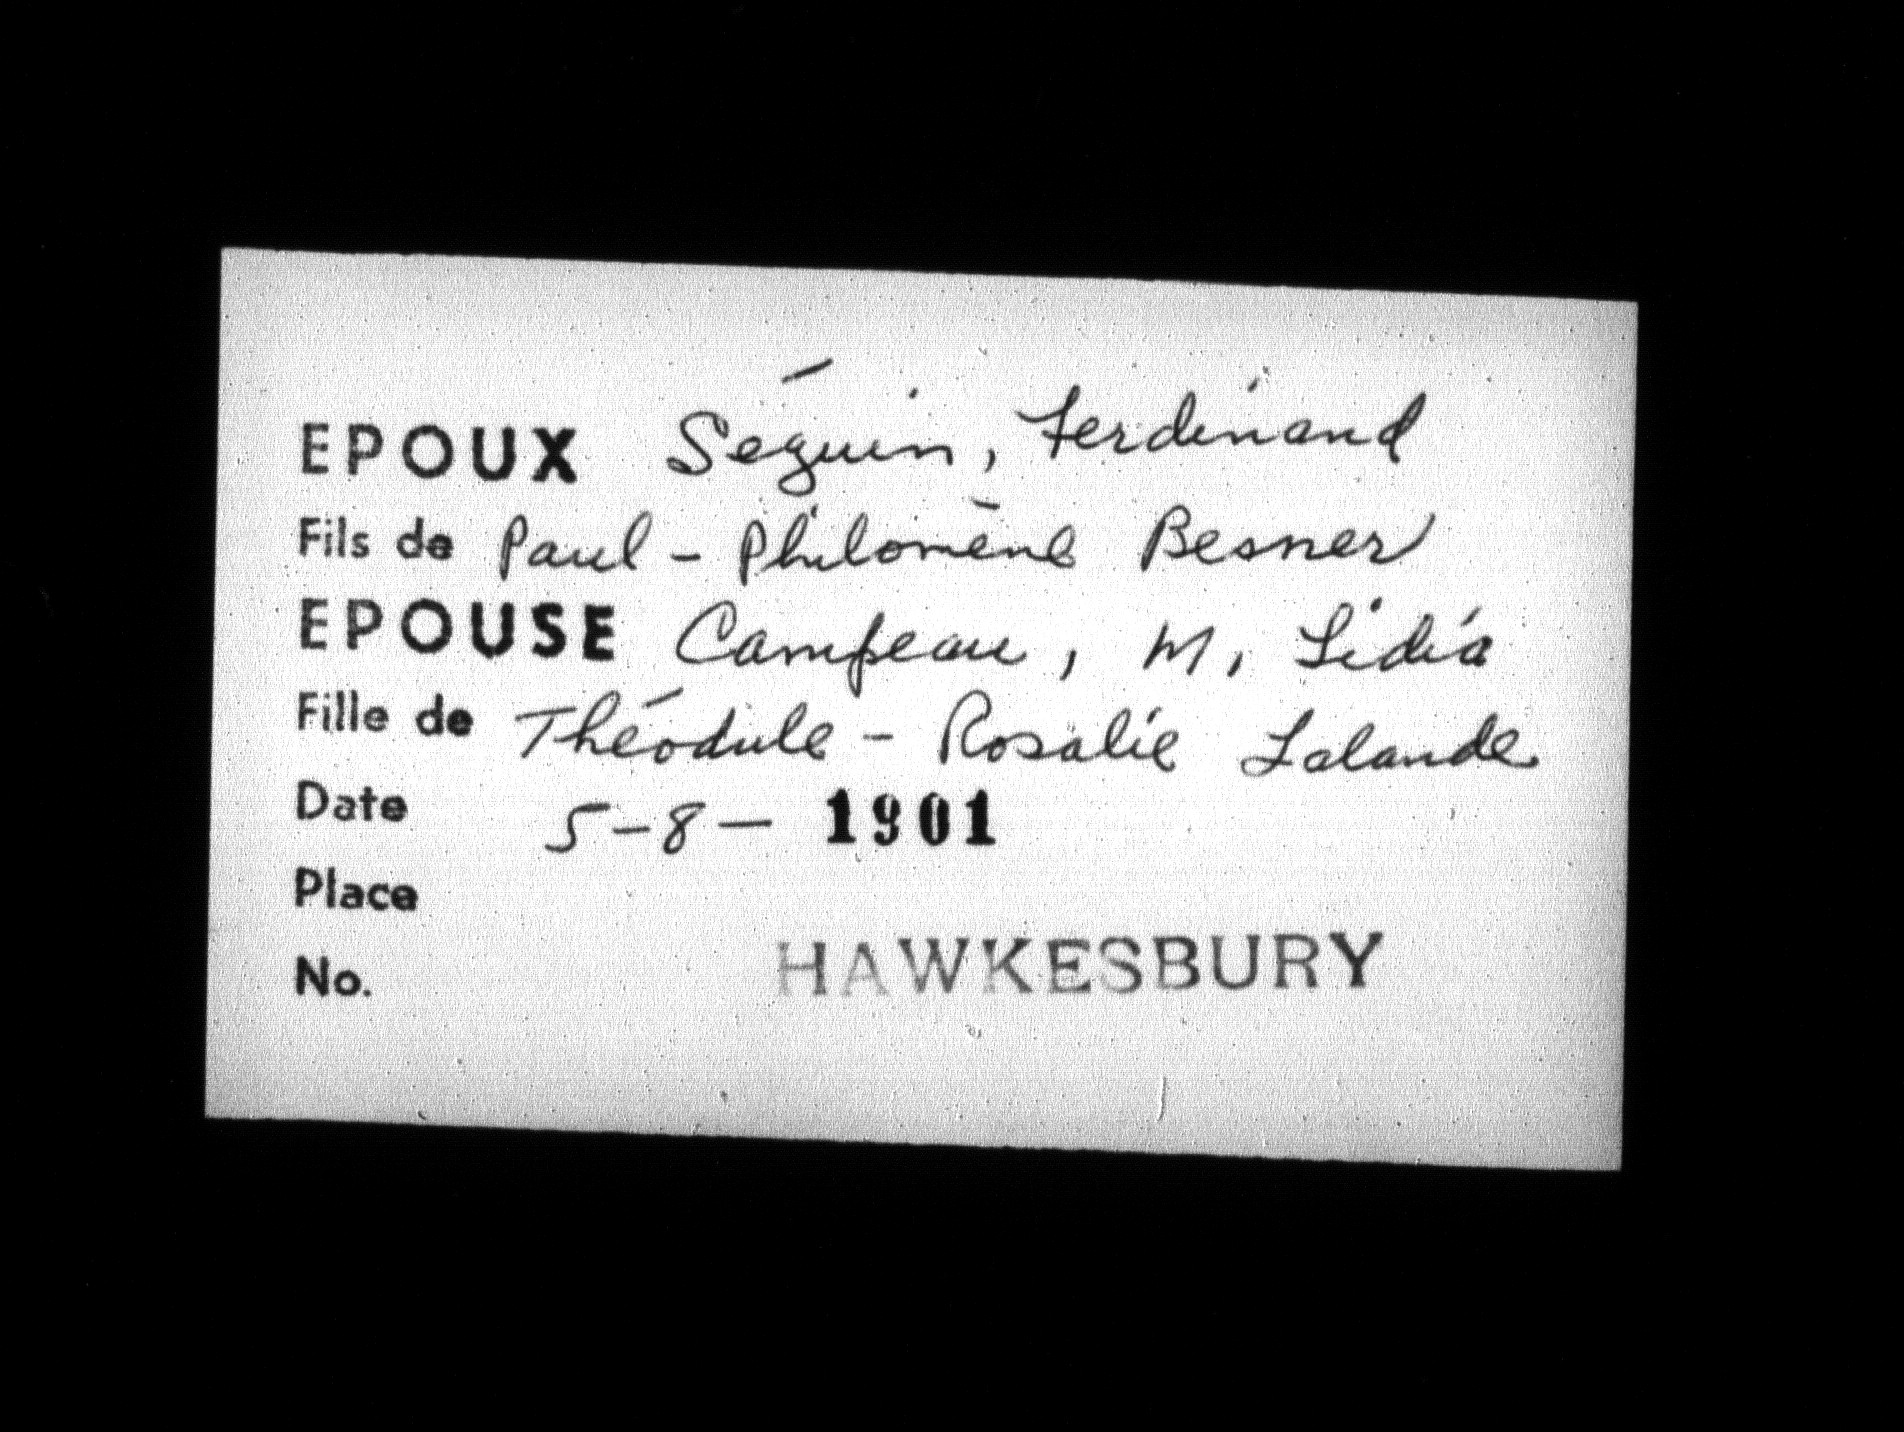 EPOUX Séguin, Ferdinand
Fils de Paul - Philomène Besner
EPOUSE Campeau, M. Lidia
Fille de Théodule - Rosalie Lalande
Date 5-8- 1901
Place
HAWKESBURY
No.